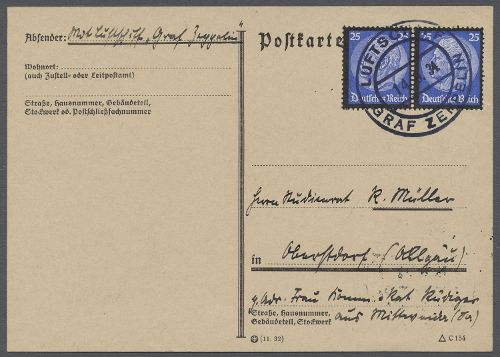 Absender: Mot Luftschiff „Graf Zeppelin"
Wohnort:
(auch Zustell- oder Leitpostamt)
Straße, Hausnummer, Gebäudeteil,
Stockwerk od. Postschließfachnummer
Postkarte
25 25 25
Deutsches Reich Deutsches Reich
LUFTS
GRAF ZE
Herrn Studienrat R. Müller
in Oberstdorf (Allgäu)
b. Adr. Frau Komm. Rat Rüdiger
Straße, Hausnummer,
Gebäudeteil, Stockwerk
aus Mittweida (Sa)
(11. 32)
C 154